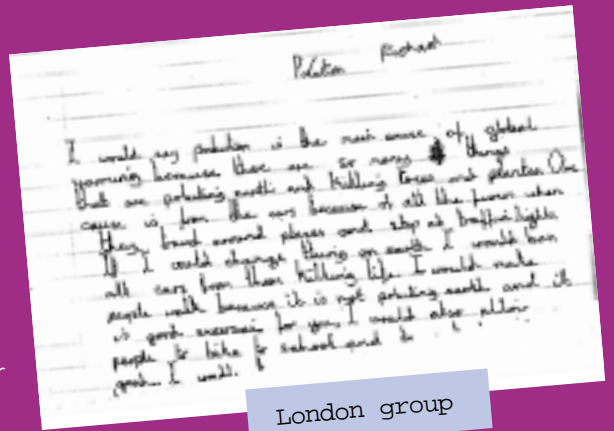 Polution Richard
I would say polution is the main cause of global
because there are so many things
that are poluting earth and killing trees and plantes One
cause is from the cars because of all the fumes when
they travel around places and stop at traffic lights
If I could change things on earth I would ban
all cars from there killing life. I would make
people walk because it is not poluting earth and it
is good for you, I would also allow
people to bike to school and
I
London group